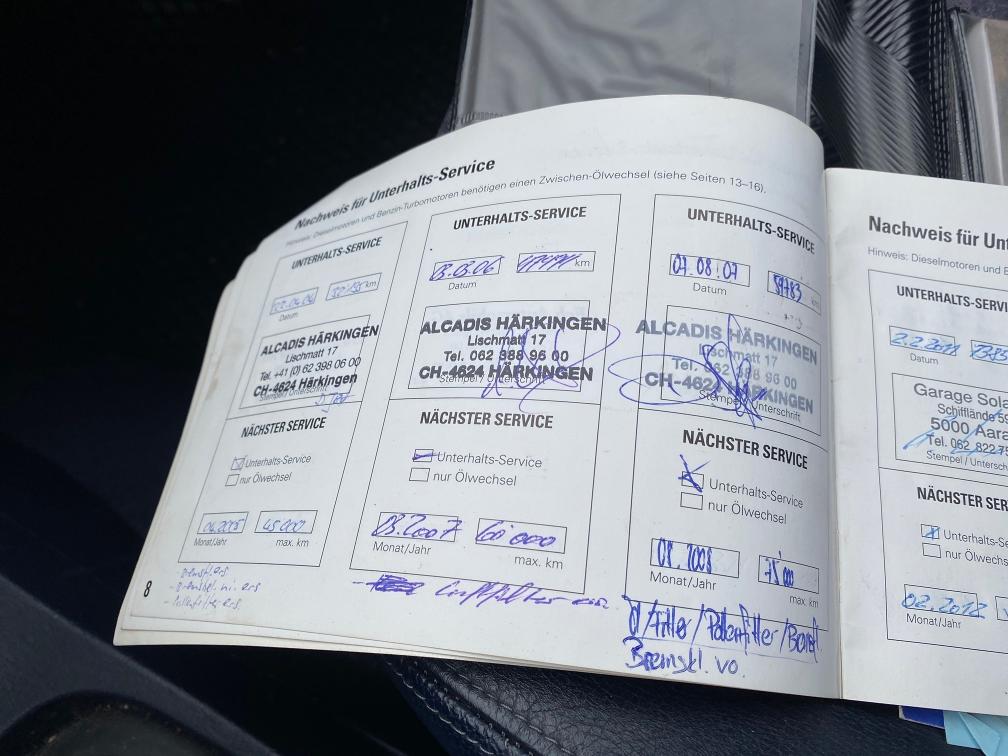 Nachweis für Unterhalts-Service
Hinweis: Dieselmotoren und Benzin-Turbomotoren benötigen einen Zwischen-Ölwechsel (siehe Seiten 13–16).
UNTERHALTS-SERVICE
km
Datum
ALCADIS HÄRKINGEN
Lischmatt 17
Tel. +41 (0) 62 398 06 00
CH-4624 Härkingen
Stempel / Unterschrift
NÄCHSTER SERVICE
Unterhalts-Service
nur Ölwechsel
04.2005 45000
Monat/Jahr max. km
UNTERHALTS-SERVICE
03.03.06 km
Datum
ALCADIS HÄRKINGEN
Lischmatt 17
Tel. 062 388 96 00
CH-4624 HÄRKINGEN
Stempel / Unterschrift
NÄCHSTER SERVICE
Unterhalts-Service
nur Ölwechsel
03.2007 60000
Monat/Jahr max. km
Luftfilter
UNTERHALTS-SERVICE
07.08.07 59783 km
Datum
ALCADIS HÄRKINGEN
Lischmatt 17
Tel. 062 388 96 00
CH-4624 HÄRKINGEN
Stempel / Unterschrift
NÄCHSTER SERVICE
Unterhalts-Service
nur Ölwechsel
08.2008 75'000
Monat/Jahr max. km
Öl/Filter/Pollenfilter/
Bremskl. vo.
8
Nachweis für Unt
Hinweis: Dieselmotoren und B
UNTERHALTS-SERVI
2.2.2011
Datum
Garage Sola
Schifflände 59
5000 Aara
Tel. 062 822 75
Stempel / Untersch
NÄCHSTER SERV
Unterhalts-Se
nur Ölwechs
02.2012
Monat/Jahr